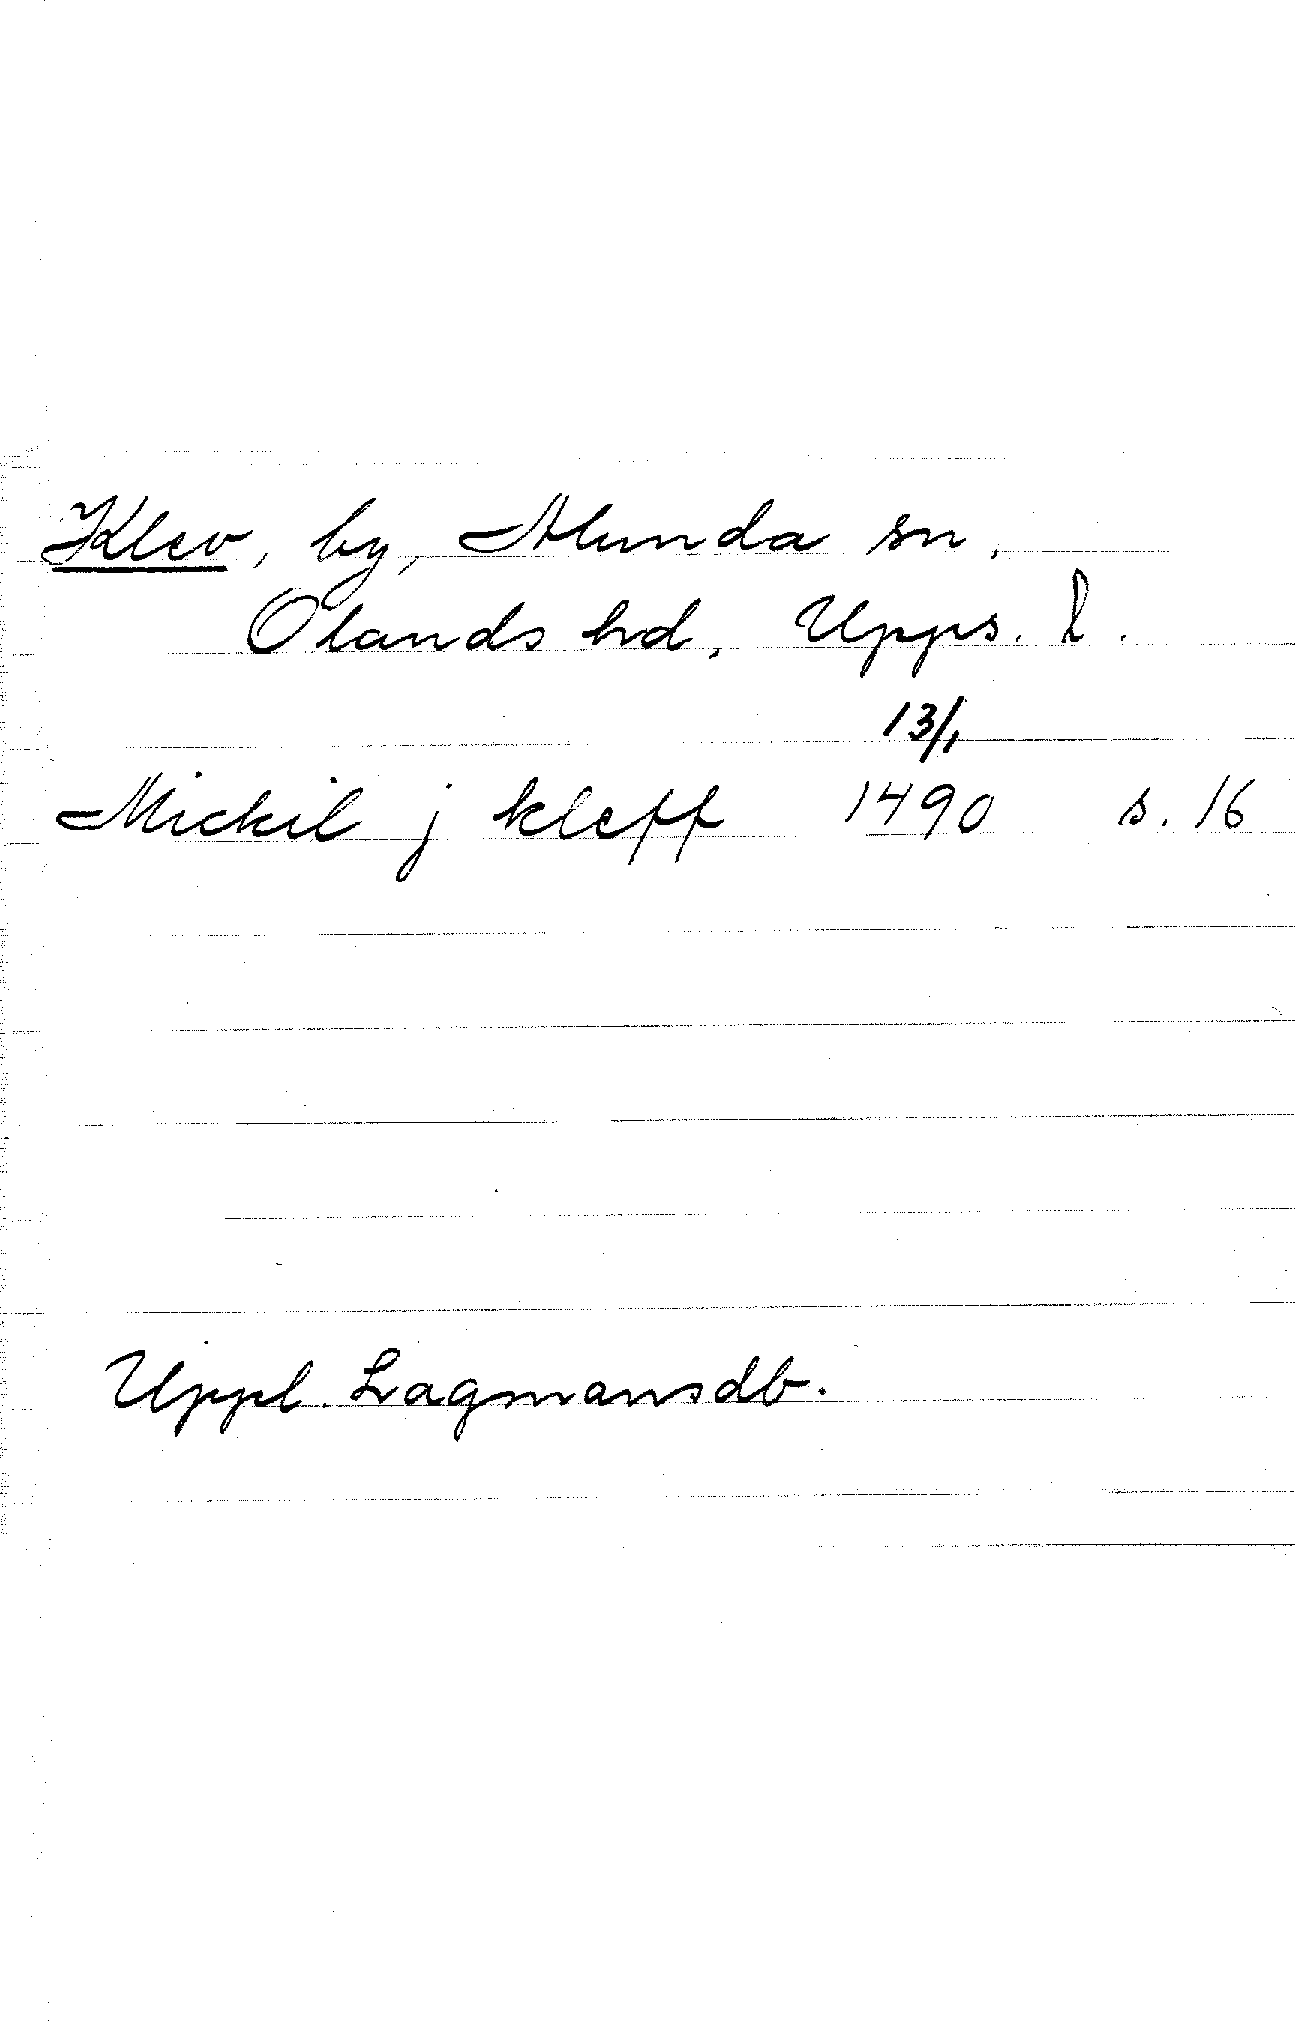 Klev, by, Alunda sn,
Olands hd, Upps. l.
13/1
Mickil j kleff 1490 s. 16
Uppl. Lagmansdb.